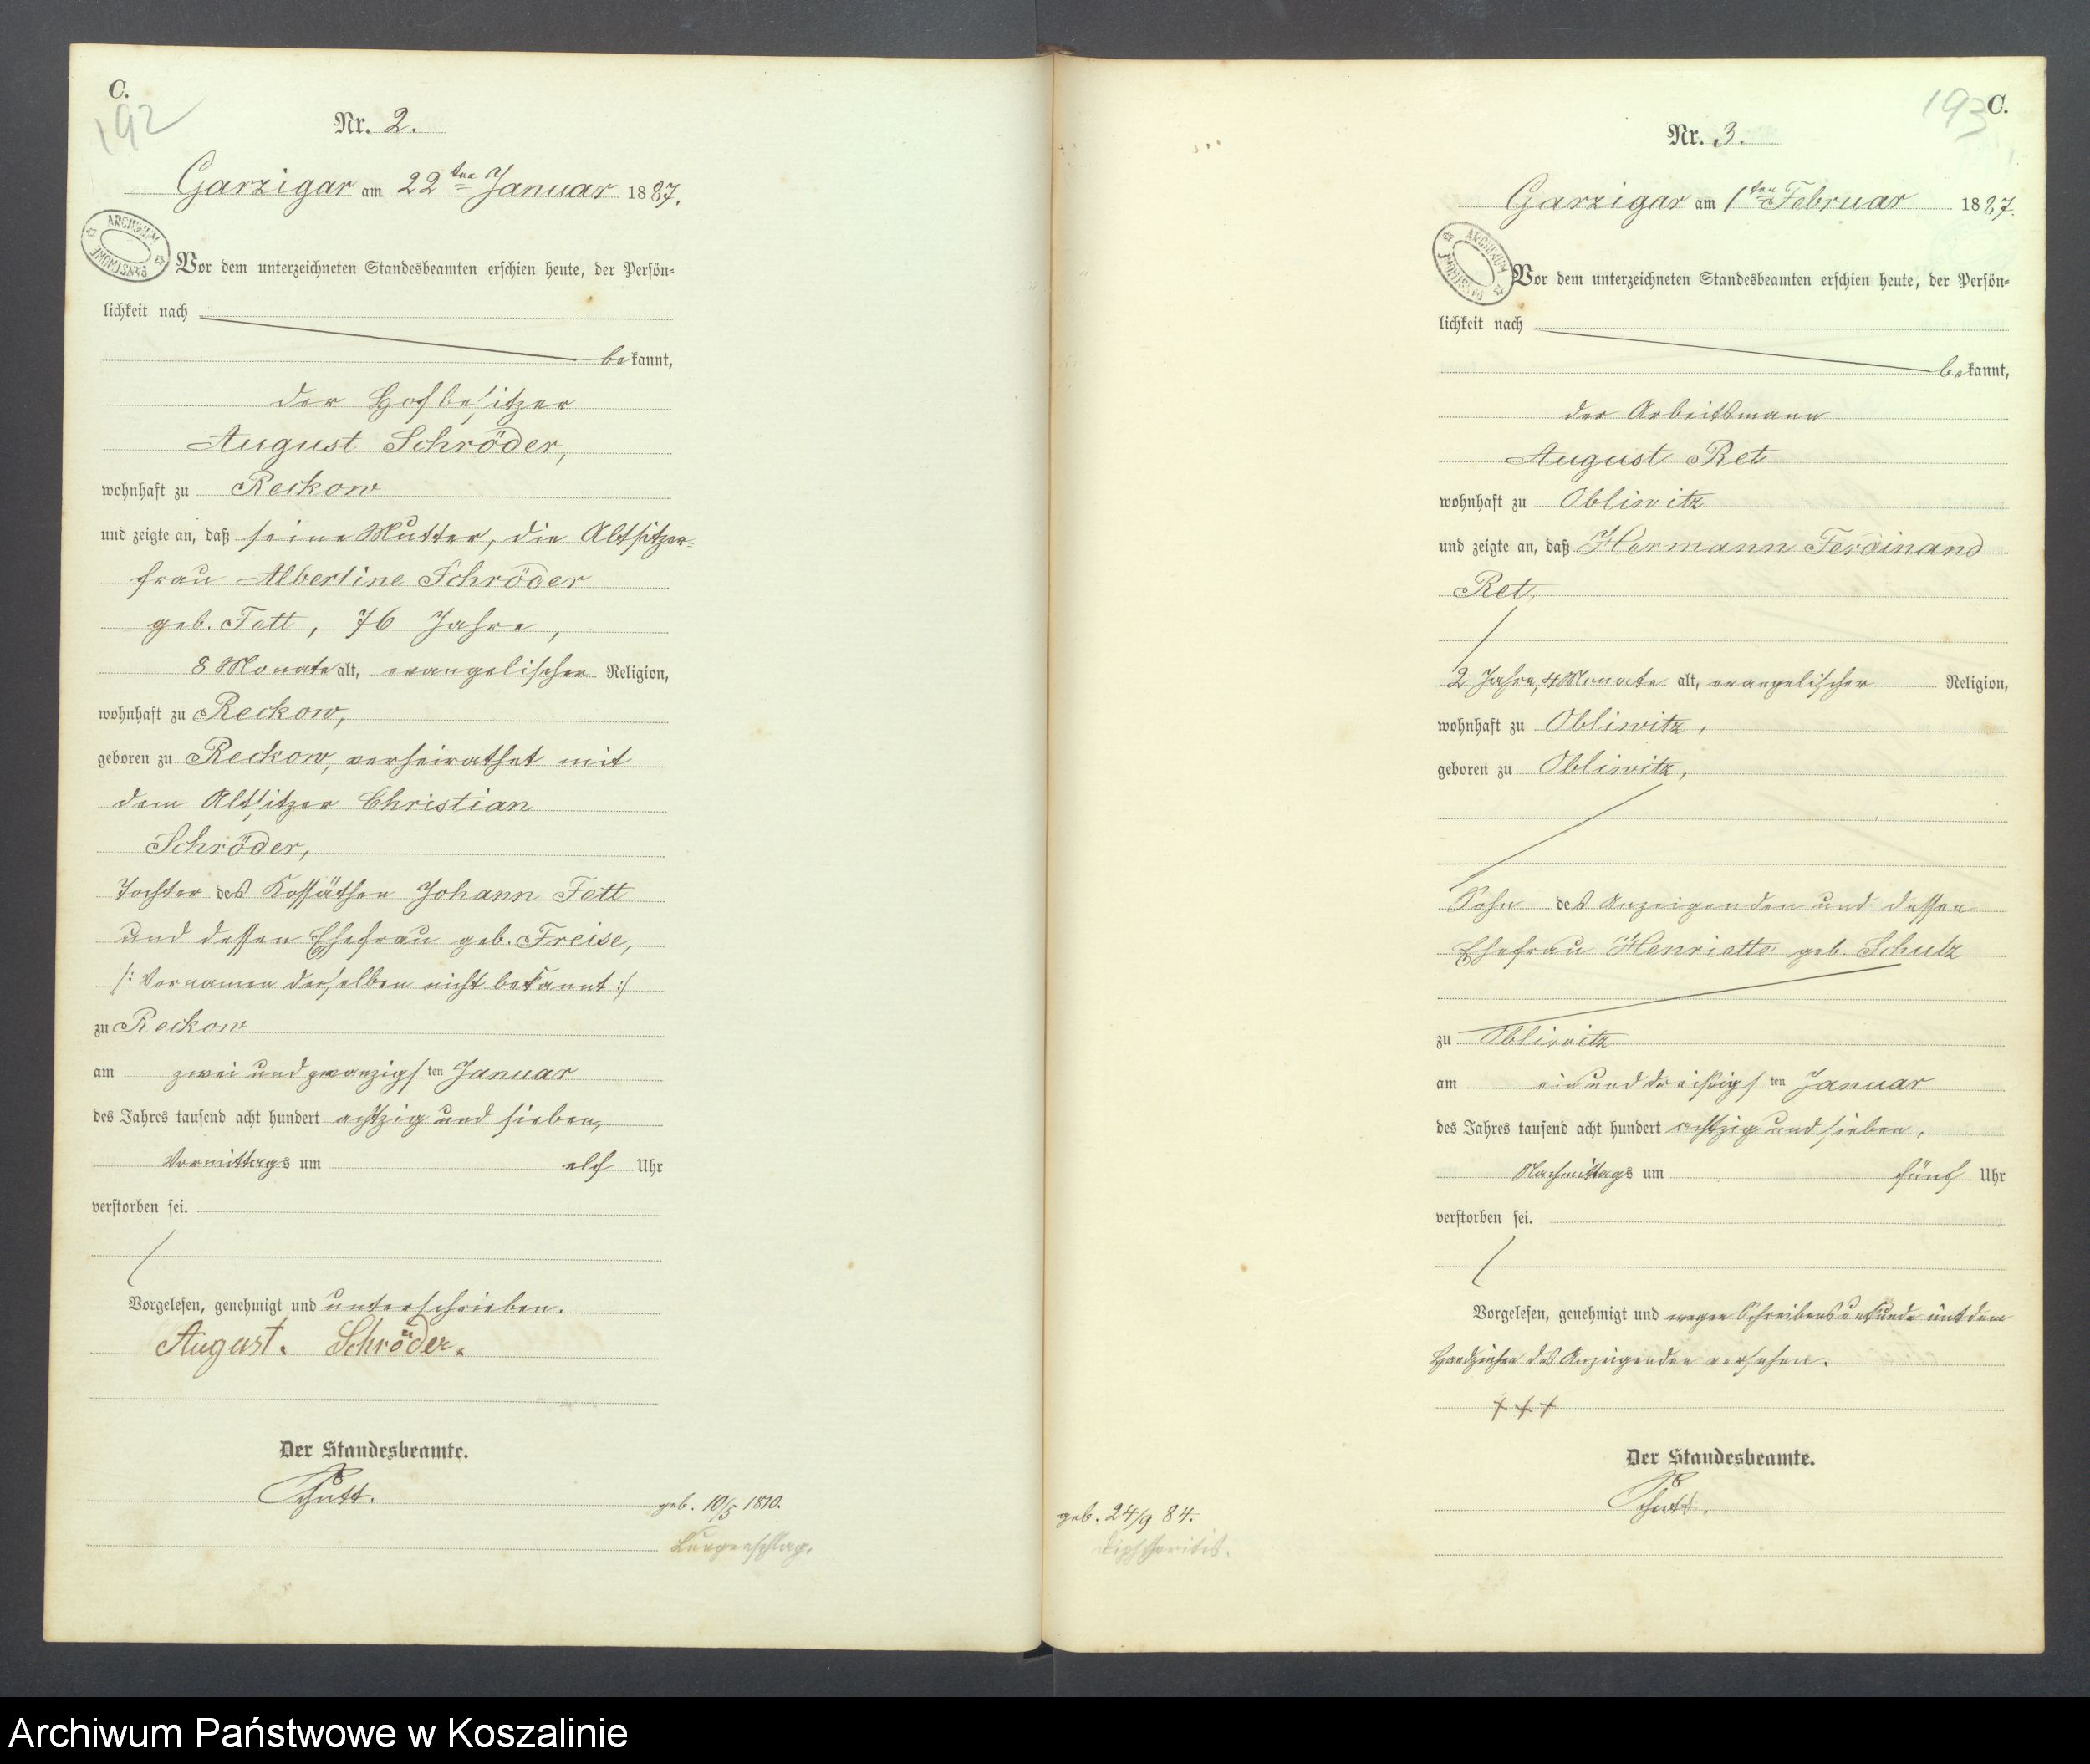 C.
192
Nr. 2.
Garzigar am 22ten Januar 1887.
ARCHIWUM PAŃSTWOWE
Vor dem unterzeichneten Standesbeamten erschien heute, der Persön=
lichkeit nach
bekannt,
der Hofbesitzer
August Schröder,
wohnhaft zu Reckow
und zeigte an, daß seine Mutter, die Altsitzer=
frau Albertine Schröder
geb. Fett, 76 Jahre,
8 Monate alt, evangelischer Religion,
wohnhaft zu Reckow,
geboren zu Reckow, verheirathet mit
dem Altsitzer Christian
Schröder,
Tochter des Kossäthen Johann Fett
und dessen Ehefrau geb. Freise,
/: Vornamen derselben nicht bekannt :/
zu Reckow
am zwei und zwanzigsten Januar
des Jahres tausend acht hundert achtzig und sieben,
Vormittags um elf Uhr
verstorben sei.
Vorgelesen, genehmigt und unterschrieben.
August. Schröder.
Der Standesbeamte.
geb. 10/5 1810.
Lungenschlag.
193 C.
Nr. 3.
Garzigar am 1ten Februar 1887.
ARCHIWUM PAŃSTWOWE
Vor dem unterzeichneten Standesbeamten erschien heute, der Persön=
lichkeit nach
bekannt,
der Arbeitsmann
August Ret
wohnhaft zu Obliwitz
und zeigte an, daß Hermann Ferdinand
Ret,
2 Jahre, 4 Monate alt, evangelischer Religion,
wohnhaft zu Obliwitz,
geboren zu Obliwitz,
Sohn des Anzeigenden und dessen
Ehefrau Henriette geb. Schulz
zu Obliwitz
am ein und dreißigsten Januar
des Jahres tausend acht hundert achtzig und sieben,
Nachmittags um fünf Uhr
verstorben sei.
Vorgelesen, genehmigt und wegen Schreibensunkunde mit dem
Handzeichen des Anzeigenden versehen.
+++
Der Standesbeamte.
geb. 24/9 84.
Diphtheritis.
Archiwum Państwowe w Koszalinie